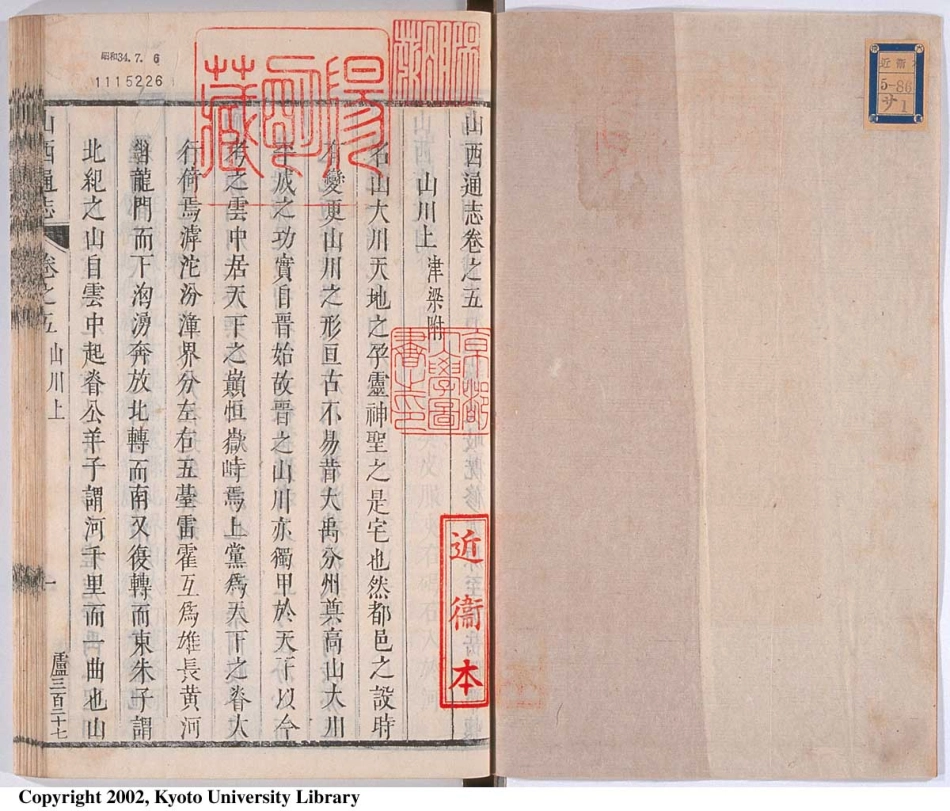 近衛本
5-86
サ
1
昭和34.7.6
1115226
山西通志卷之五
山川上 津梁附
名山大川天地之孕靈神聖之是宅也然都邑之設時
有變更山川之形亘古不易昔大禹分州奠高山大川
平成之功實自晋始故晋之山川亦獨甲於天下以今
考之雲中居天下之巔恒嶽峙焉上黨爲天下之脊太
行倚焉滹沱汾漳界分左右五臺雷霍互爲雄長黄河
龍門而下洶湧奔放北轉而南又復轉而東朱子謂
北紀之山自雲中起脊公羊子謂河千里而一曲也山
山西通志
卷之五
山川上
一
盧三百三十七
京都帝國大學圖書之印
近衞本
Copyright 2002, Kyoto University Library